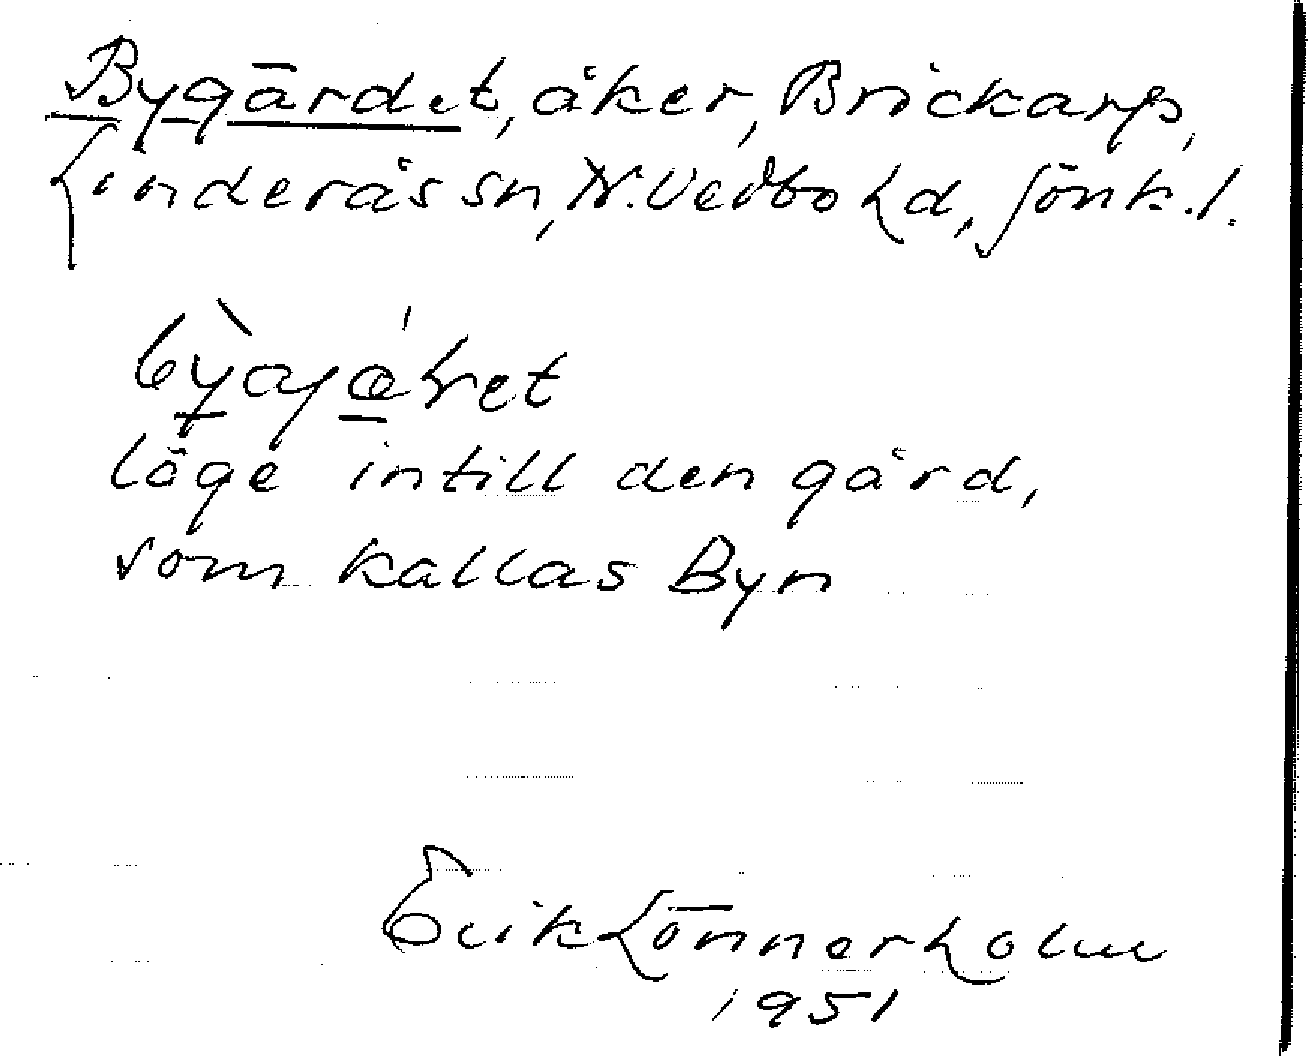 Bygärdet, åker, Brickarp,
Linderås sn, N. Vedbo hd, Jönk. l.
läge intill den gård,
som kallas Byn
Erik Lönnerholm
1951